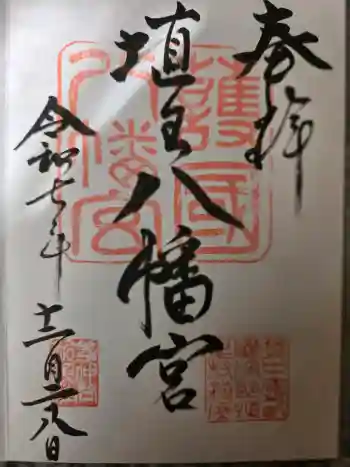 奉拝
護國
八幡宮
埴生八幡宮
令和七年
十二月二八日